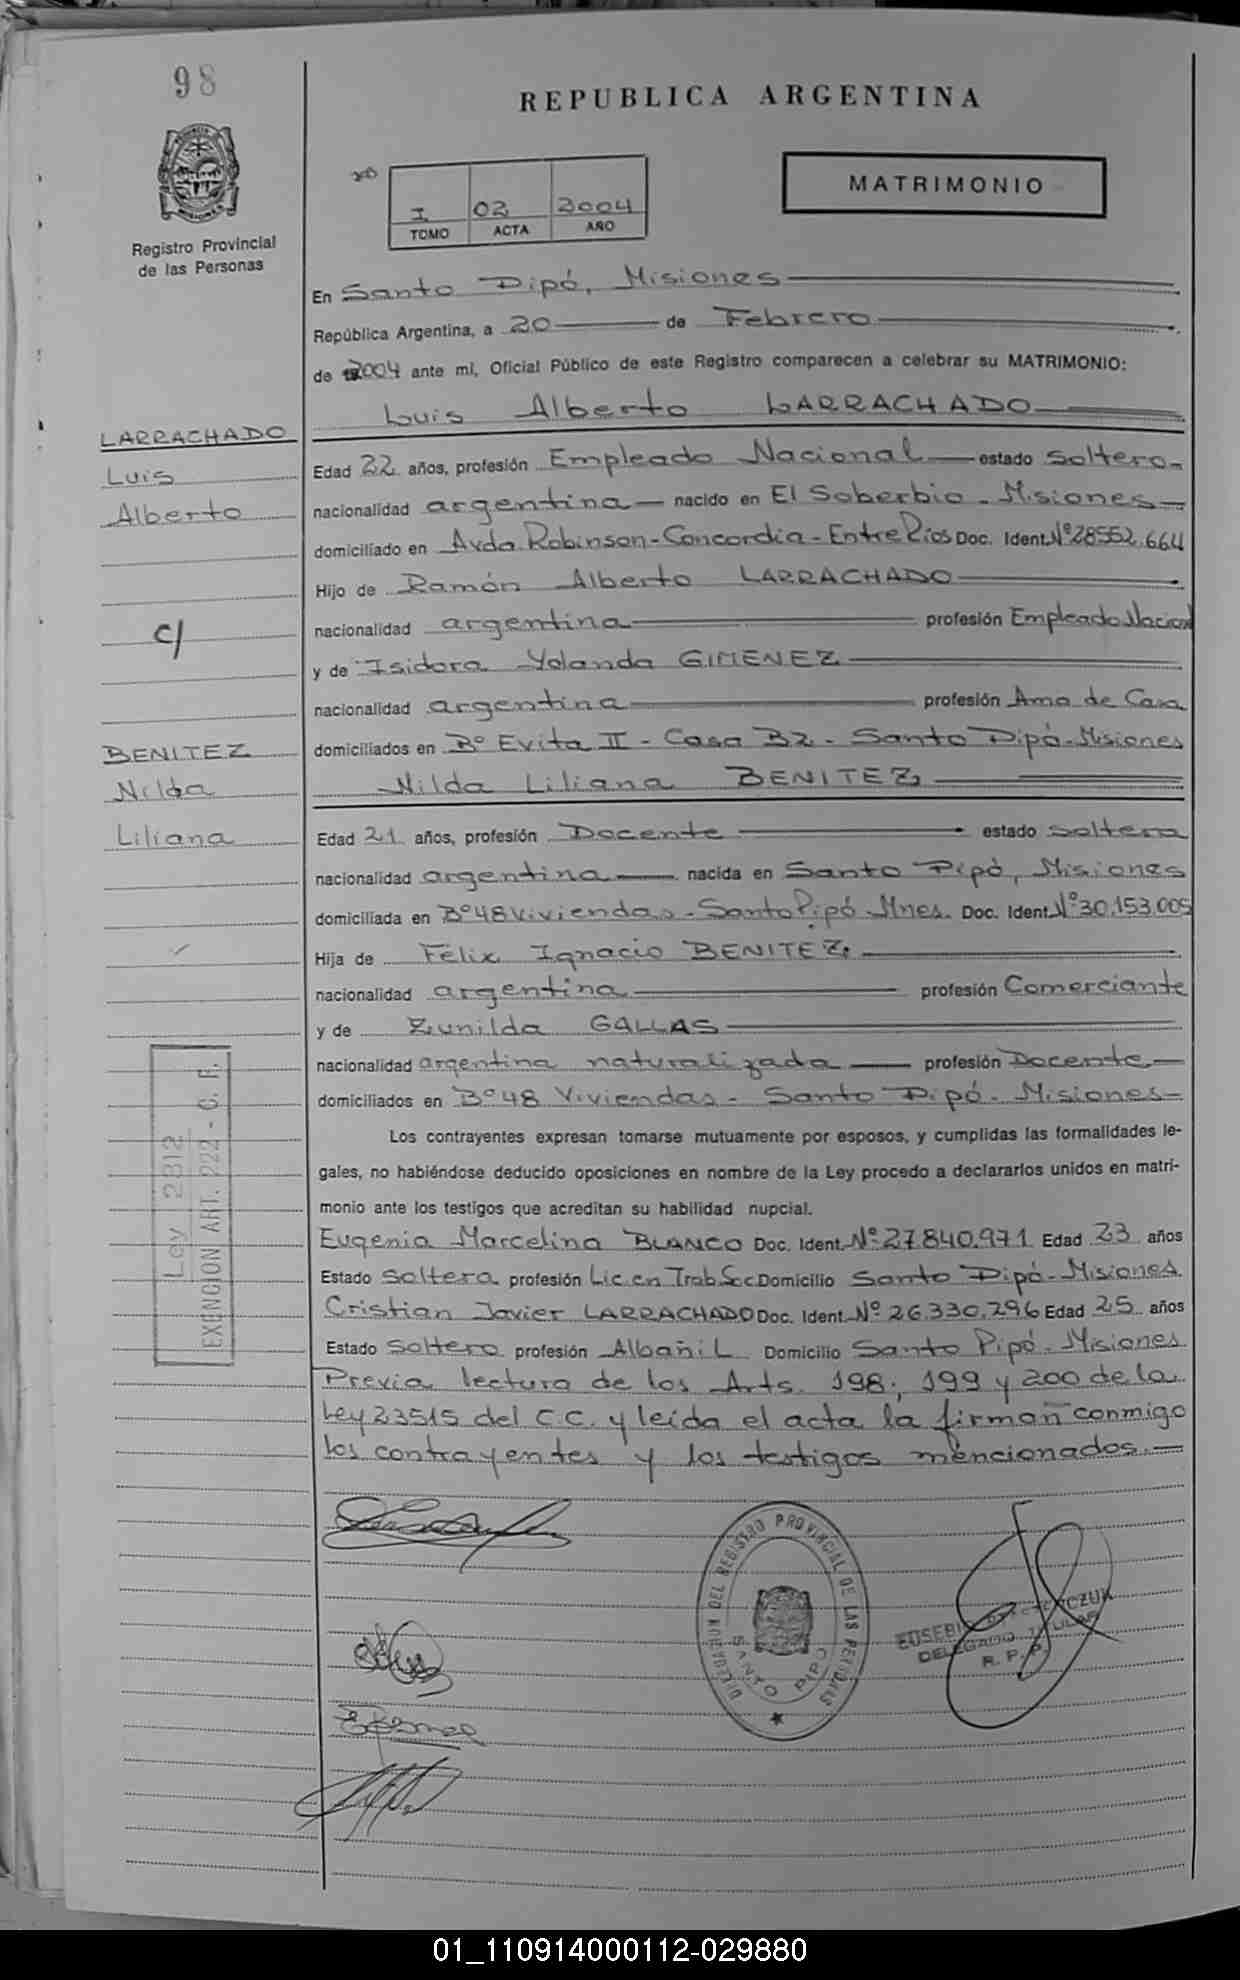 98
REPUBLICA ARGENTINA
MATRIMONIO
I 02 2004
TOMO ACTA AÑO
Registro Provincial
de las Personas
En Santo Pipó, Misiones
República Argentina, a 20 de Febrero
de 2004 ante mí, Oficial Público de este Registro comparecen a celebrar su MATRIMONIO:
Luis Alberto LARRACHADO
LARRACHADO
Luis
Alberto
c/
BENITEZ
Nilda
Liliana
Edad 22 años, profesión Empleado Nacional estado soltero
nacionalidad argentina nacido en El Soberbio - Misiones
domiciliado en Avda Robinson - Concordia - Entre Rios Doc. Ident. Nº 28552.664
Hijo de Ramón Alberto LARRACHADO
nacionalidad argentina profesión Empleado Nacional
y de Isidora Yolanda GIMENEZ
nacionalidad argentina profesión Ama de Casa
domiciliados en Bº Evita II - Casa 32 - Santo Pipó - Misiones
Nilda Liliana BENITEZ
Edad 21 años, profesión Docente estado soltera
nacionalidad argentina nacida en Santo Pipó, Misiones
domiciliada en Bº 48 Viviendas - Santo Pipó - Mnes. Doc. Ident. Nº 30.153.005
Hija de Felix Ignacio BENITEZ
nacionalidad argentina profesión Comerciante
y de Zunilda GALLAS
nacionalidad argentina naturalizada profesión Docente
domiciliados en Bº 48 Viviendas - Santo Pipó - Misiones
Los contrayentes expresan tomarse mutuamente por esposos, y cumplidas las formalidades le-
gales, no habiéndose deducido oposiciones en nombre de la Ley procedo a declararlos unidos en matri-
monio ante los testigos que acreditan su habilidad nupcial.
Eugenia Marcelina BLANCO Doc. Ident. Nº 27840.971 Edad 23 años
Estado soltera profesión Lic en Trab. Soc Domicilio Santo Pipó - Misiones
Cristian Javier LARRACHADO Doc. Ident. Nº 26.330.296 Edad 25 años
Estado soltero profesión Albañil Domicilio Santo Pipó - Misiones
Previa lectura de los Arts. 198; 199 y 200 de la
Ley 23515 del C.C. y leída el acta la firman conmigo
los contrayentes y los testigos mencionados.
Ley 2312
EXENCION ART. 222 - C. F.
DIRECCION DEL REGISTRO PROVINCIAL DE LAS PERSONAS
SANTO PIPO
EUSEBIO
DELEGADO TITULAR
R. P. P.
01_110914000112-029880